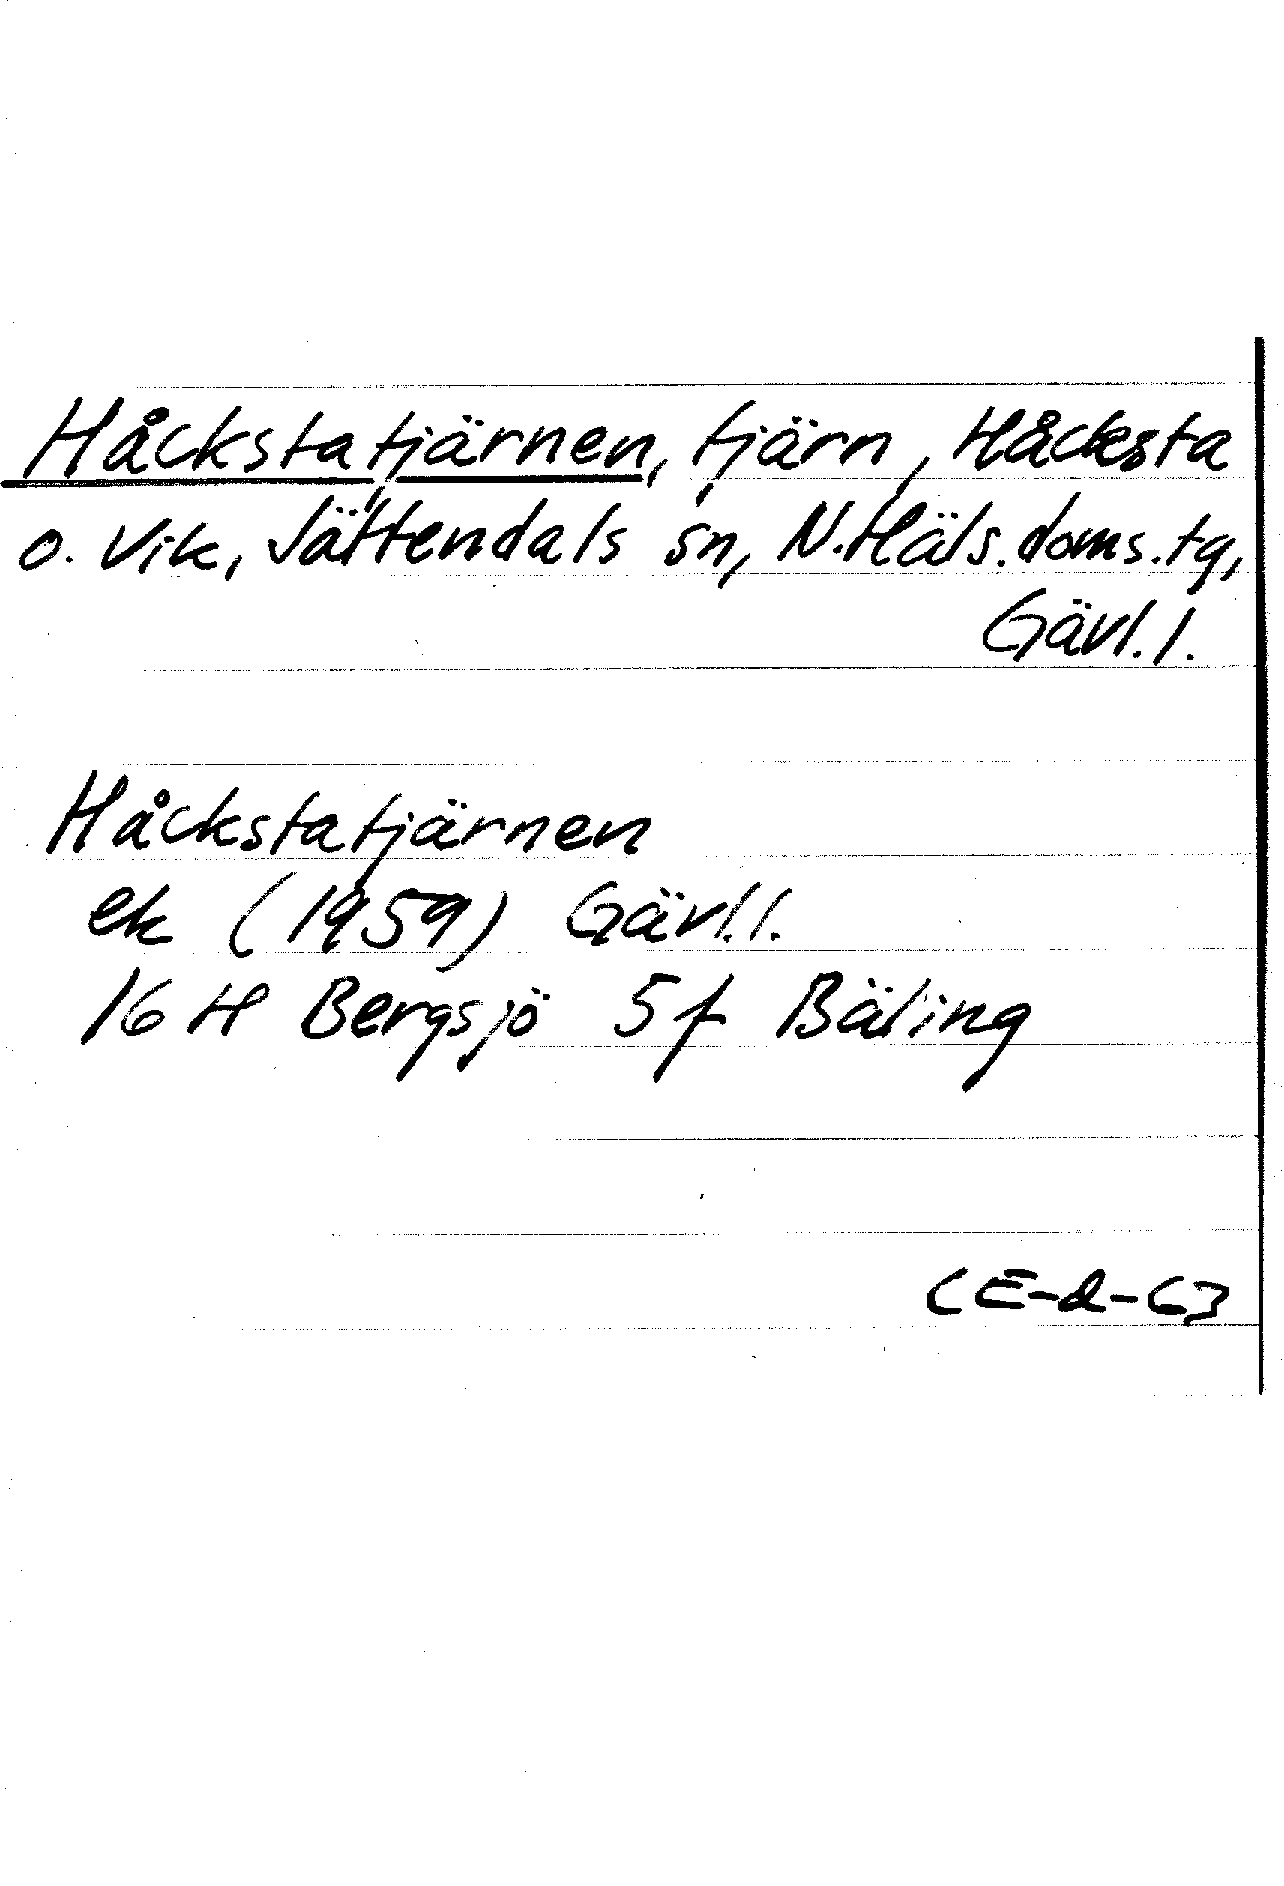 Håckstatjärnen, tjärn, Håcksta
o. Vik, Jättendals sn, N.Häls.doms.tg,
Gävl.l.
Håckstatjärnen
ek (1959) Gävl.l.
16 H Bergsjö 5f Bäling
(E-d-6)